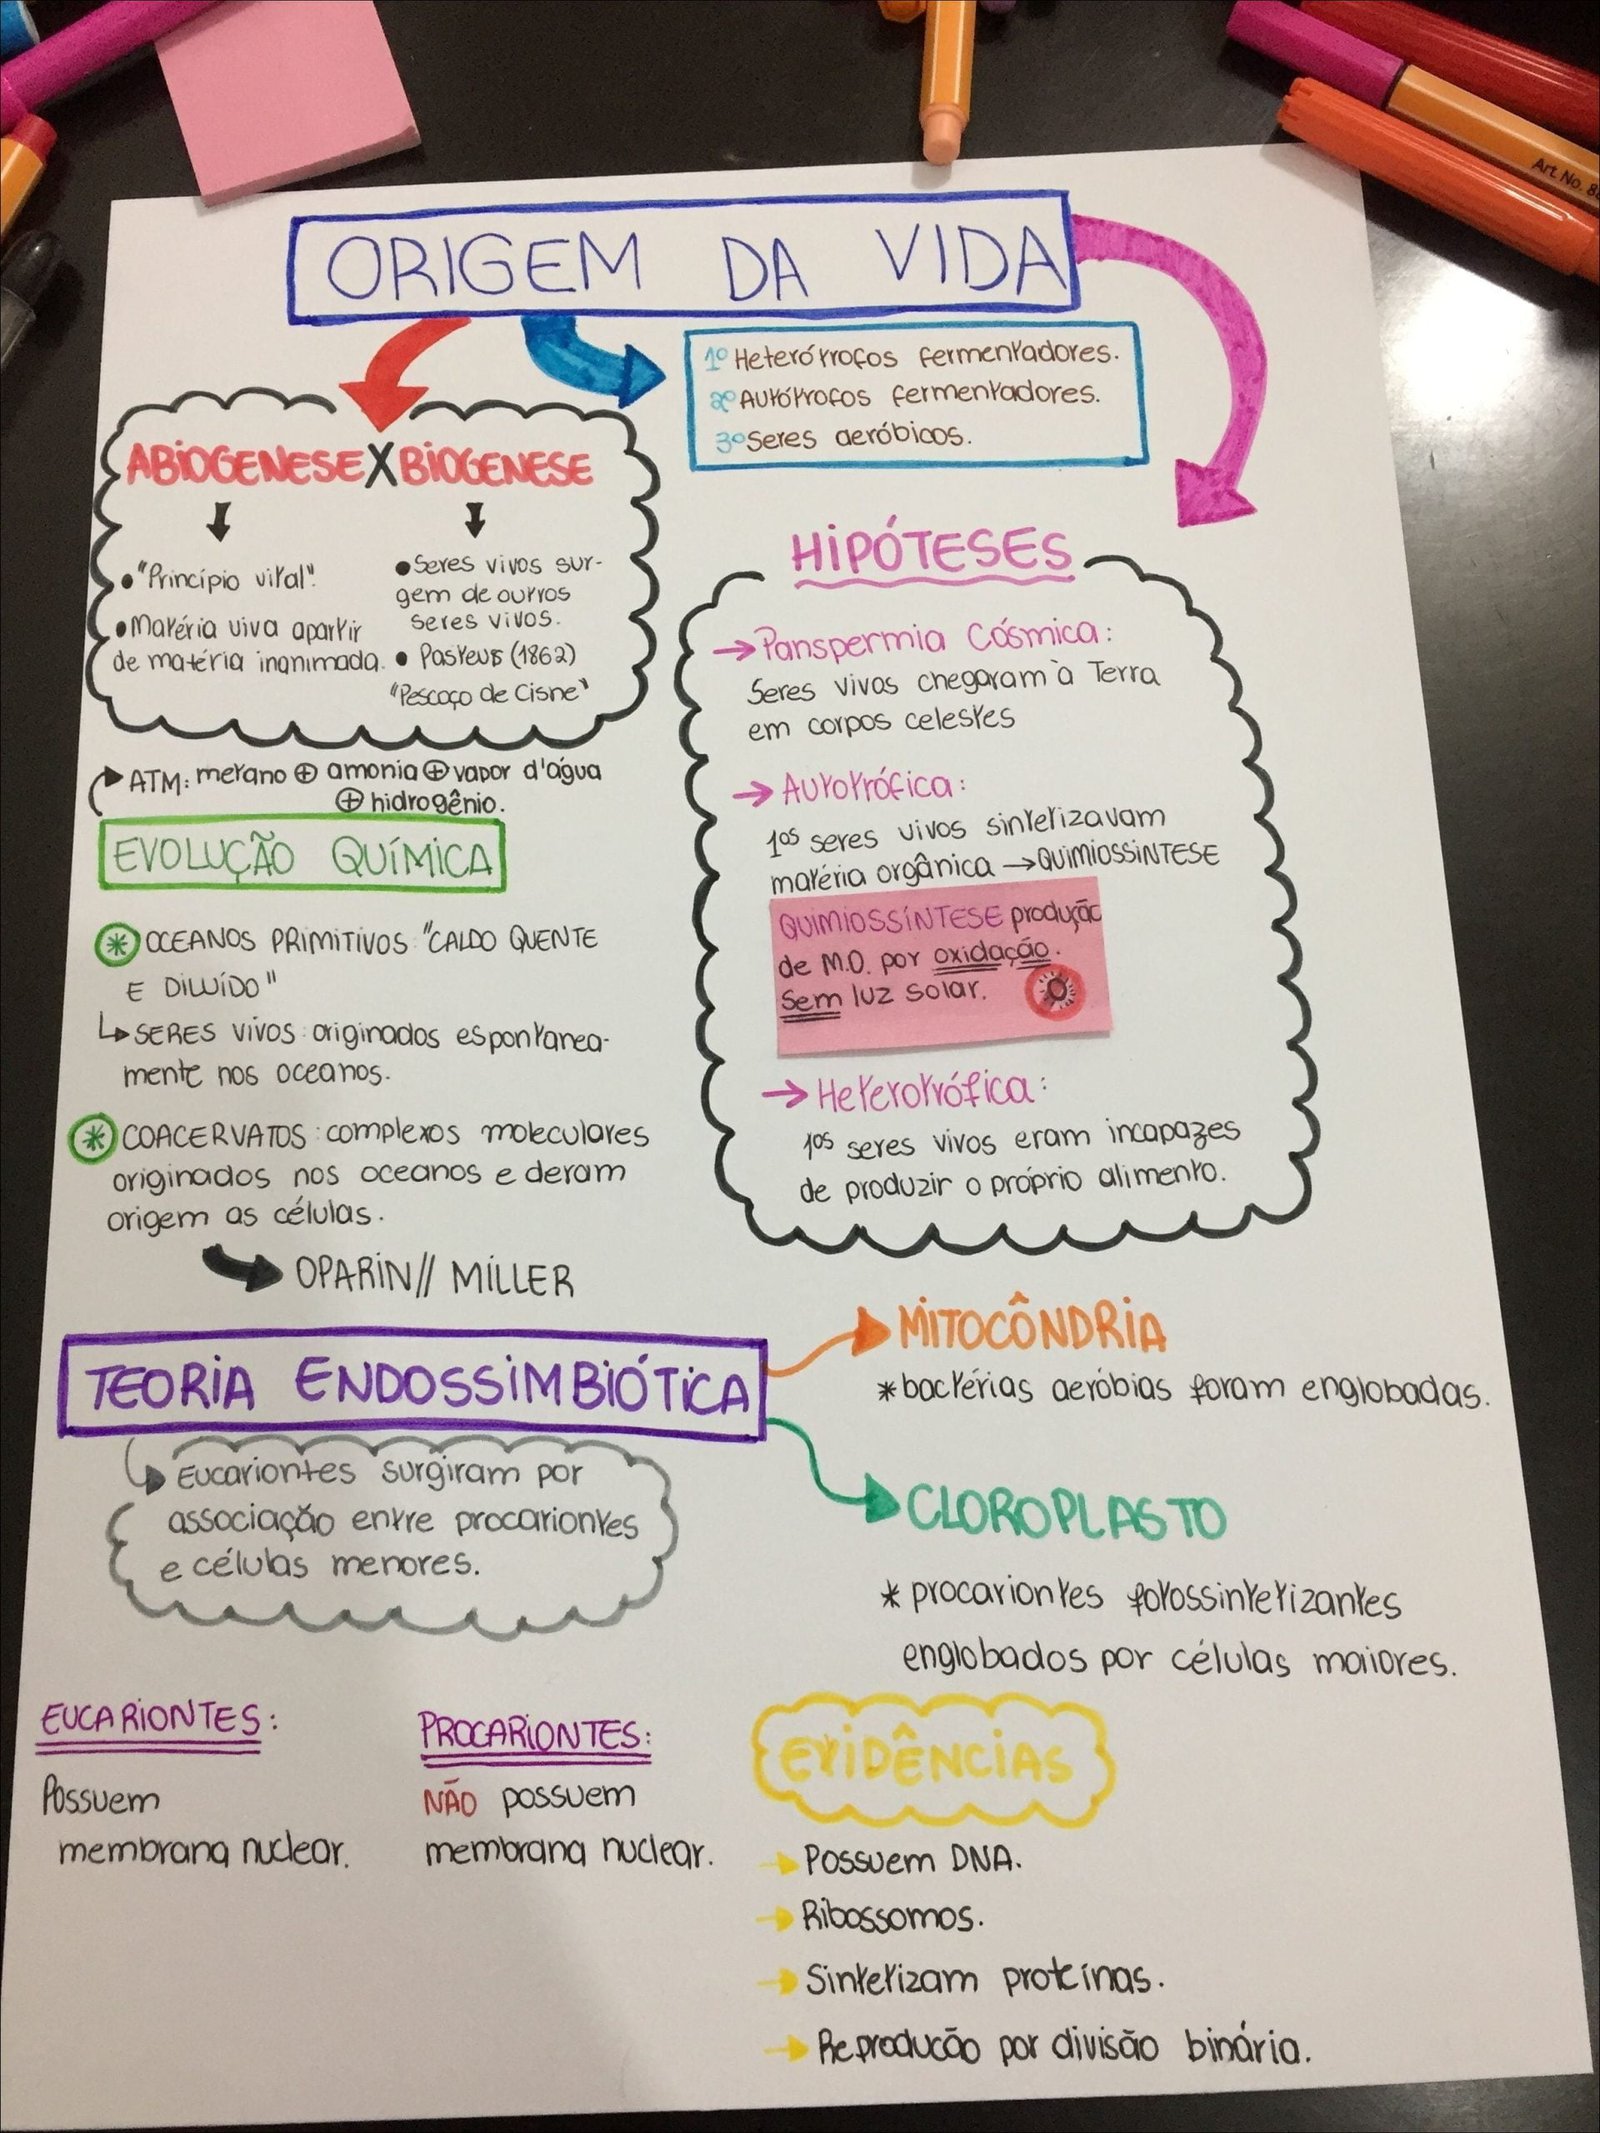 ORIGEM DA VIDA
1º Heterótrofos fermentadores.
2º Autótrofos fermentadores.
3º Seres aeróbicos.
ABIOGENESE X BIOGENESE
• "Princípio vital".
• Matéria viva apartir
de matéria inanimada.
• Seres vivos sur-
gem de outros
seres vivos.
• Pasteur (1862)
"Pescoço de Cisne"
HIPÓTESES
→ Panspermia Cósmica:
Seres vivos chegaram à Terra
em corpos celestes
→ Autotrófica:
1ºs seres vivos sintetizavam
matéria orgânica → QUIMIOSSINTESE
QUIMIOSSÍNTESE produção
de M.O. por oxidação.
Sem luz solar.
→ Heterotrófica:
1ºs seres vivos eram incapazes
de produzir o próprio alimento.
ATM: metano ⊕ amonia ⊕ vapor d'água
⊕ hidrogênio.
EVOLUÇÃO QUÍMICA
* OCEANOS PRIMITIVOS: "CALDO QUENTE
E DILUÍDO"
↳ SERES vivos: originados espontanea-
mente nos oceanos.
* COACERVATOS: complexos moleculares
originados nos oceanos e deram
origem as células.
OPARIN // MILLER
TEORIA ENDOSSIMBIÓTICA
Eucariontes surgiram por
associação entre procariontes
e células menores.
MITOCÔNDRIA
* bactérias aeróbias foram englobadas.
CLOROPLASTO
* procariontes fotossintetizantes
englobados por células maiores.
EUCARIONTES:
Possuem
membrana nuclear.
PROCARIONTES:
NÃO possuem
membrana nuclear.
EVIDÊNCIAS
→ Possuem DNA.
→ Ribossomos.
→ Sintetizam proteínas.
→ Reprodução por divisão binária.